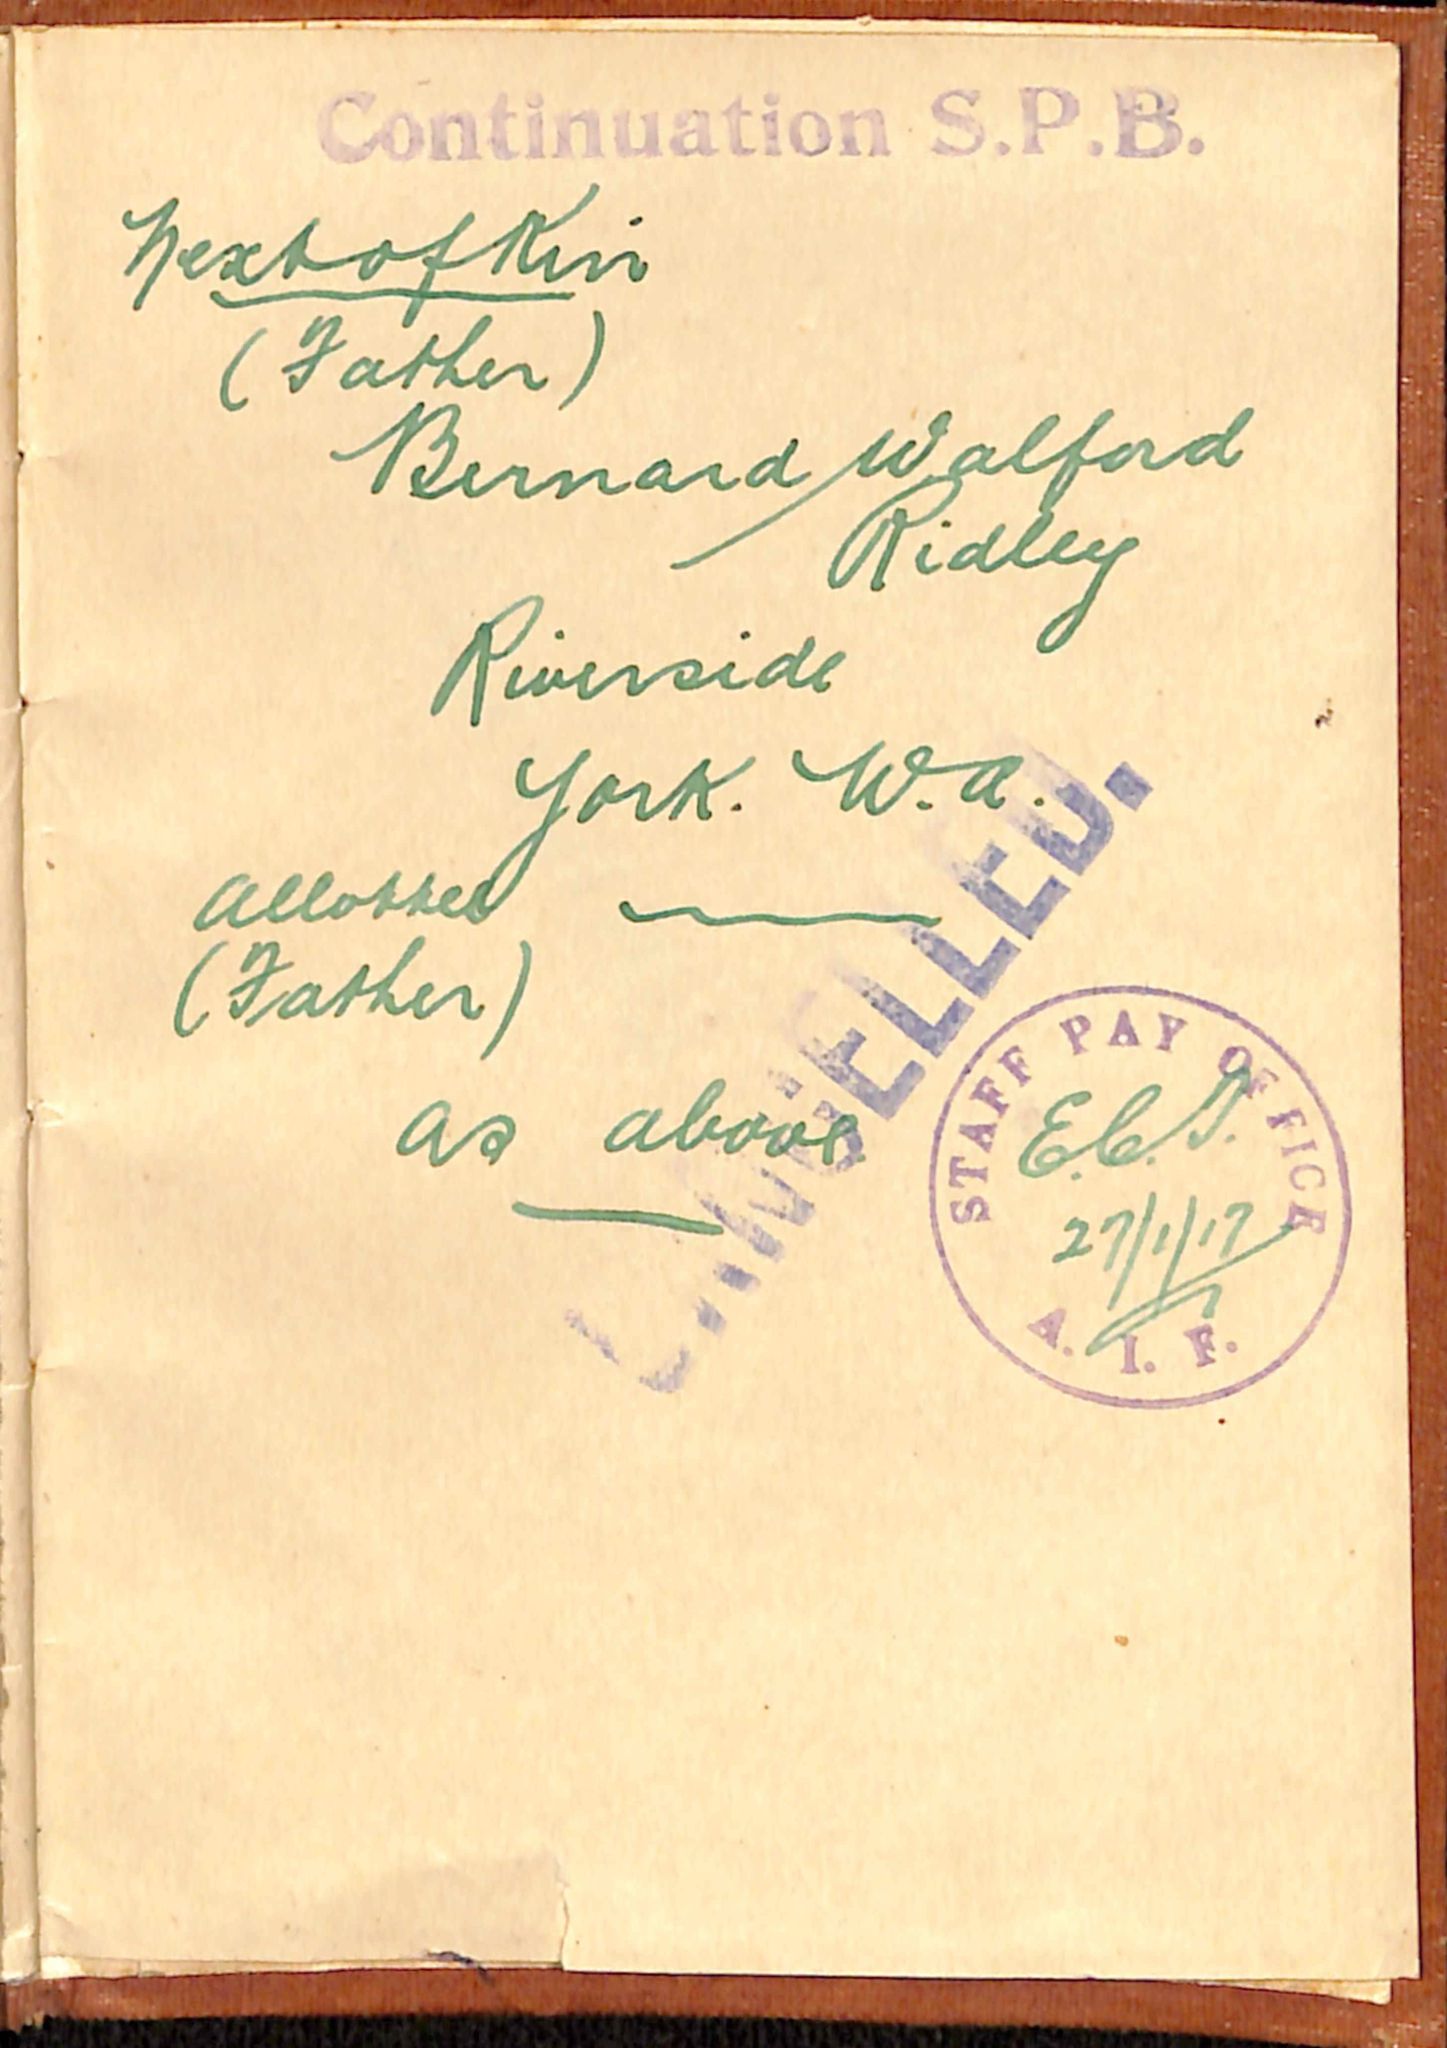 Continuation S.P.B.
Next of Kin
(Father)
Bernard Walford
Ridley
Riverside
York. W.A.
Allottee
(Father)
As above
CANCELLED.
STAFF PAY OFFICE
E.C.T.
27/1/17
A. I. F.